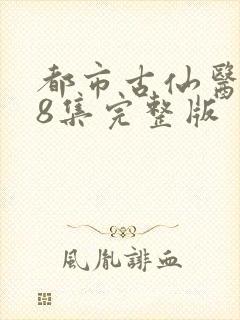 都市古仙醫
8集完整版
風胤誹血